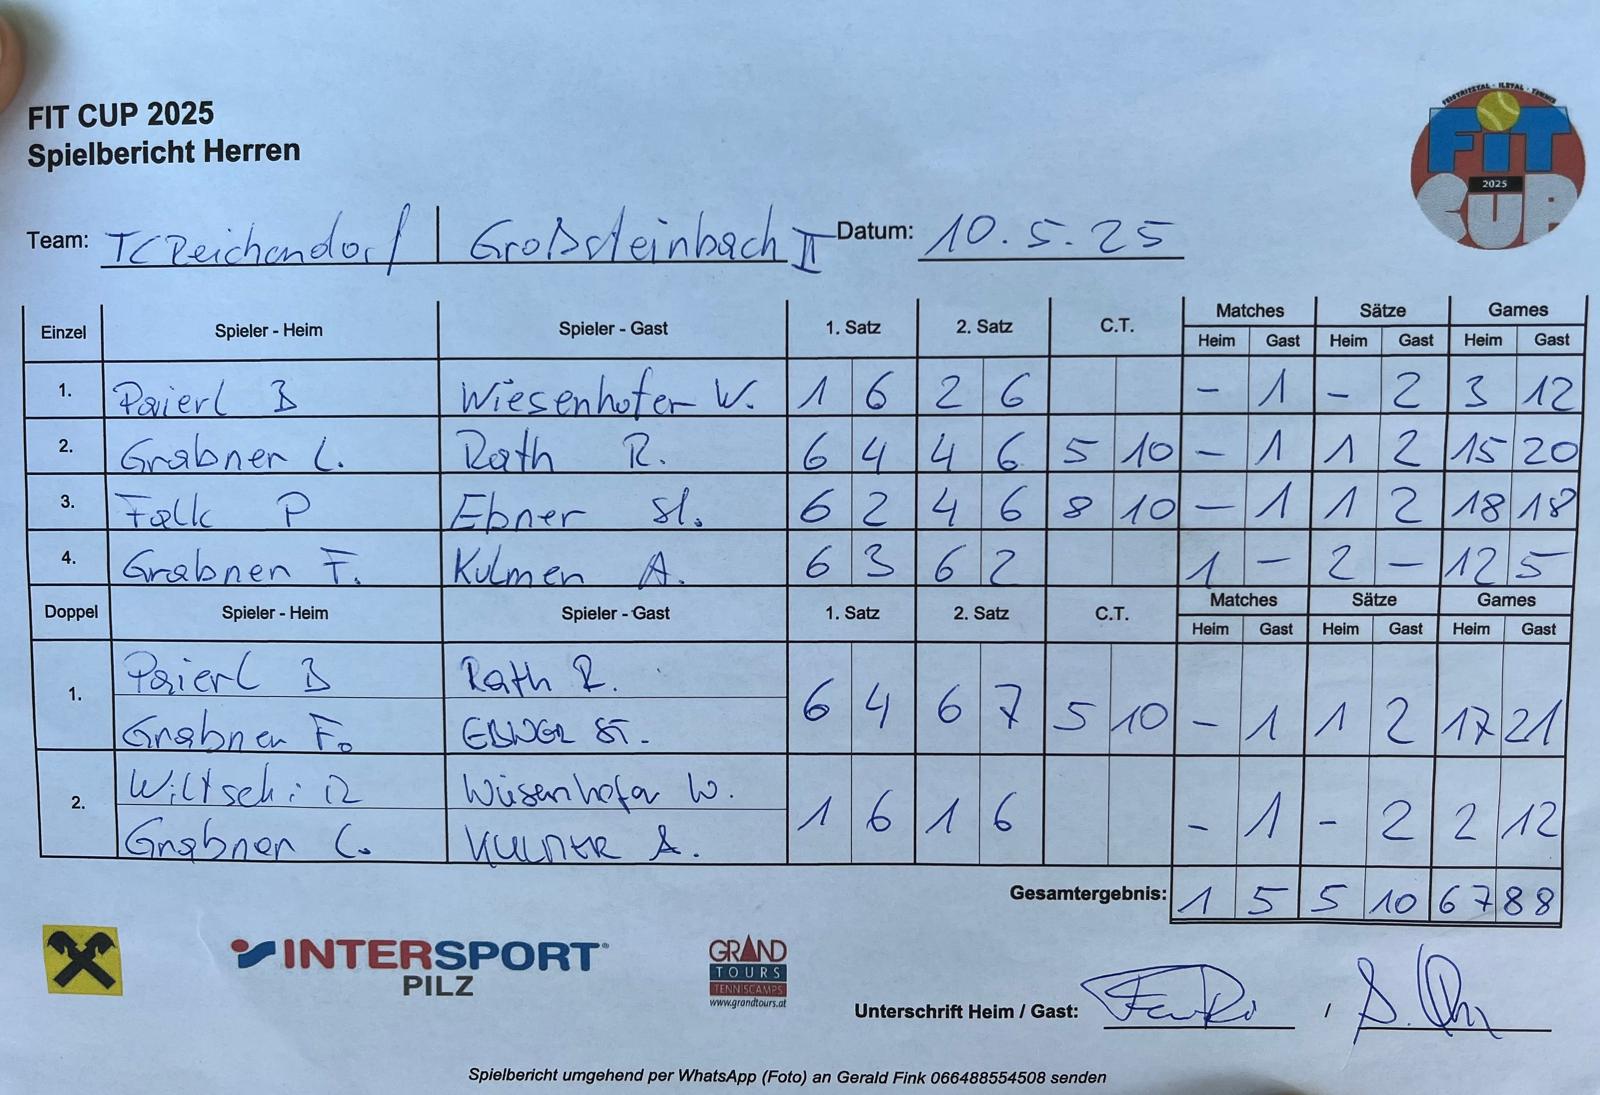 FIT CUP 2025
Spielbericht Herren
FEISTRITZTAL - ILZTAL - TENNIS
FIT
2025
CUP
Team: TC Reichendorf | Großsteinbach II Datum: 10.5.25
Einzel Spieler - Heim Spieler - Gast 1. Satz 2. Satz C.T. Matches Sätze Games
Heim Gast Heim Gast Heim Gast
1. Paierl B Wiesenhofer W. 1 6 2 6 - 1 - 2 3 12
2. Grabner C. Rath R. 6 4 4 6 5 10 - 1 1 2 15 20
3. Falk P Ebner St. 6 2 4 6 8 10 - 1 1 2 18 18
4. Grabner F. Kulmer A. 6 3 6 2 1 - 2 - 12 5
Doppel Spieler - Heim Spieler - Gast 1. Satz 2. Satz C.T. Matches Sätze Games
Heim Gast Heim Gast Heim Gast
1. Paierl B Rath R. 6 4 6 7 5 10 - 1 1 2 17 21
Grabner F. EBNER ST.
2. Wiltschi R Wiesenhofer W. 1 6 1 6 - 1 - 2 2 12
Grabner C. KULMER A.
Gesamtergebnis: 1 5 5 10 67 88
INTERSPORT
PILZ
GRAND
TOURS
TENNISCAMPS
www.grandtours.at
Unterschrift Heim / Gast: /
Spielbericht umgehend per WhatsApp (Foto) an Gerald Fink 066488554508 senden